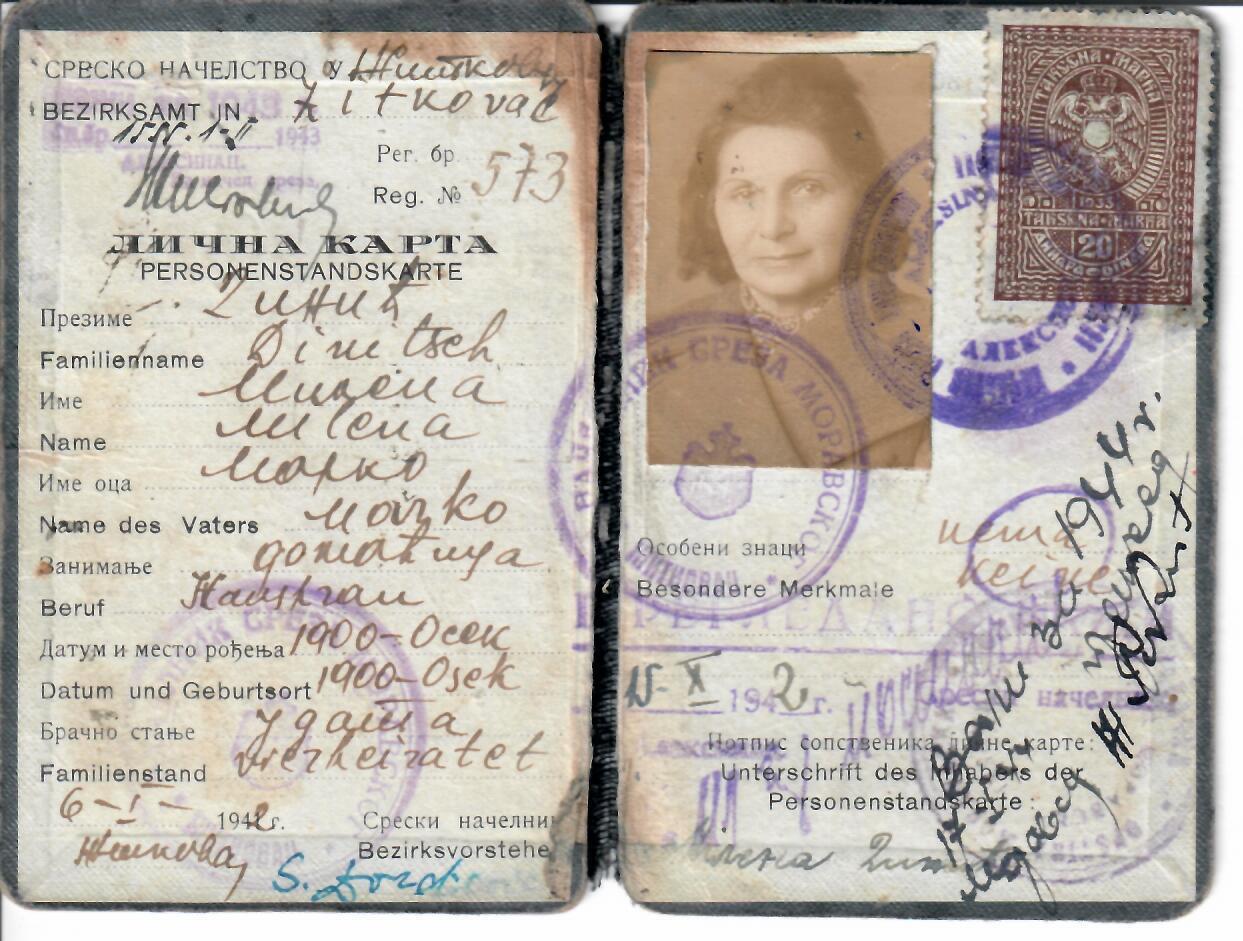 СРЕСКО НАЧЕЛСТВО У Житковац
BEZIRKSAMT IN Žitkovac
1943
Рег. бр.
Reg. № 573
ЛИЧНА КАРТА
PERSONENSTANDSKARTE
Презиме Динић
Familienname Dinitsch
Име Милена
Name Milena
Име оца Марко
Name des Vaters Marko
Занимање домаћица
Beruf Hausfrau
Датум и место рођења 1900-Осек
Datum und Geburtsort 1900-Osek
Брачно стање удата
Familienstand verheiratet
6-I- 1942 г.
Житковац
Срески начелни
Bezirksvorstehe
ТАКСЕНА МАРКА
20
ДИНАРА
СРЕЗА МОРАВСКОГ
Особени знаци нема
Besondere Merkmale keine
15-X 1942 г.
Срески начелник
Потпис сопственика личне карте:
Unterschrift des Inhabers der
Personenstandskarte:
Милена Динић
Важи за 1944 г.